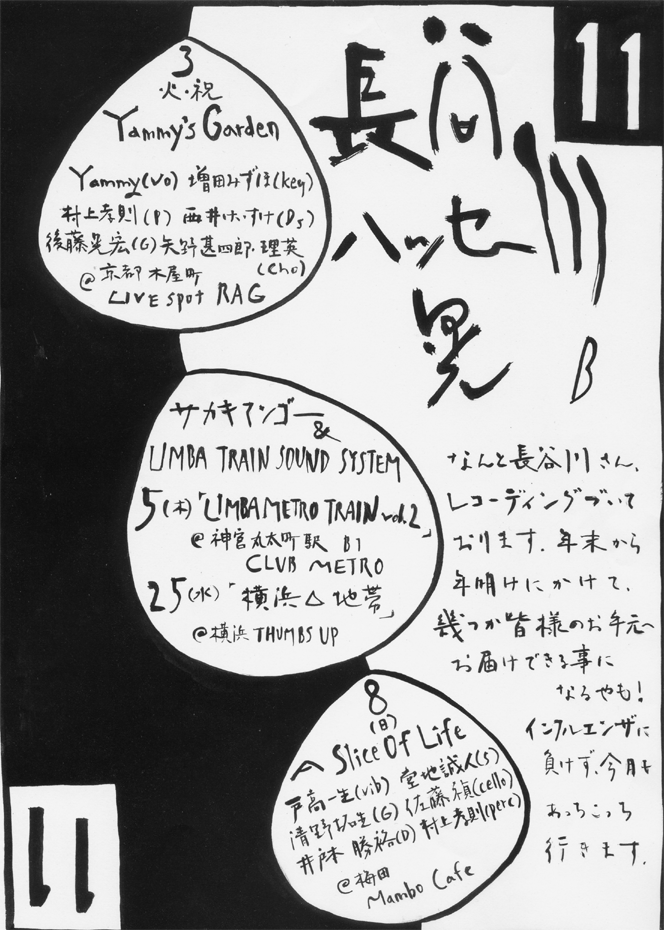 11
長谷川
ハッセー
晃
B
3
火・祝
Yammy's Garden
Yammy(Vo) 増田みずほ(Key)
村上孝則(P) 西井けいすけ(Ds)
後藤晃宏(G) 矢野甚四郎・理英
(Cho)
@京都 木屋町
LIVE Spot RAG
サカキマンゴー
&
LIMBA TRAIN SOUND SYSTEM
5(木)「LIMBA METRO TRAIN vol.2」
@神宮丸太町駅 B1
CLUB METRO
25(水)「横浜△地帯」
@横浜 THUMBS UP
8
(日)
A Slice Of Life
戸高一生(vib) 堂地誠人(S)
清野拓生(G) 佐藤禎(cello)
井戸本 勝裕(D) 村上孝則(perc)
@梅田
Mambo Cafe
なんと長谷川さん、
レコーディングづいて
おります。年末から
年明けにかけて、
幾つか皆様のお手元へ
お届けできる事に
なるやも!
インフルエンザに
負けず、今月も
あっちこっち
行きます。
11